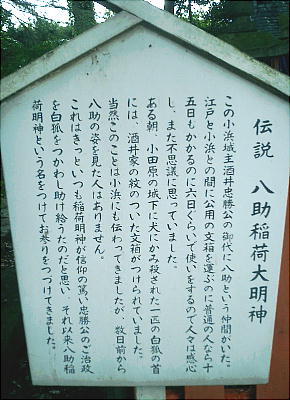 伝説 八助稲荷大明神
この小浜城主酒井忠勝公の御代に八助という仲間がいた。
江戸と小浜との間に公用の文箱を運ぶのに普通の人なら十
五日もかかるのに六日ぐらいで使いをするので人々は感心
し、また不思議に思っていました。
ある朝、小田原の城下に犬にかみ殺された一匹の白狐の首
には、酒井家の紋のついた文箱がつけられていました。
当然このことは小浜にも伝わってきましたが、数日前から
八助の姿を見た人はありません。
これはきっといつも稲荷明神が信仰の篤い忠勝公のご治政
を白狐をつかわし助け給うたのだと思い、それ以来八助稲
荷明神という名をつけてお参りをつづけてきました。